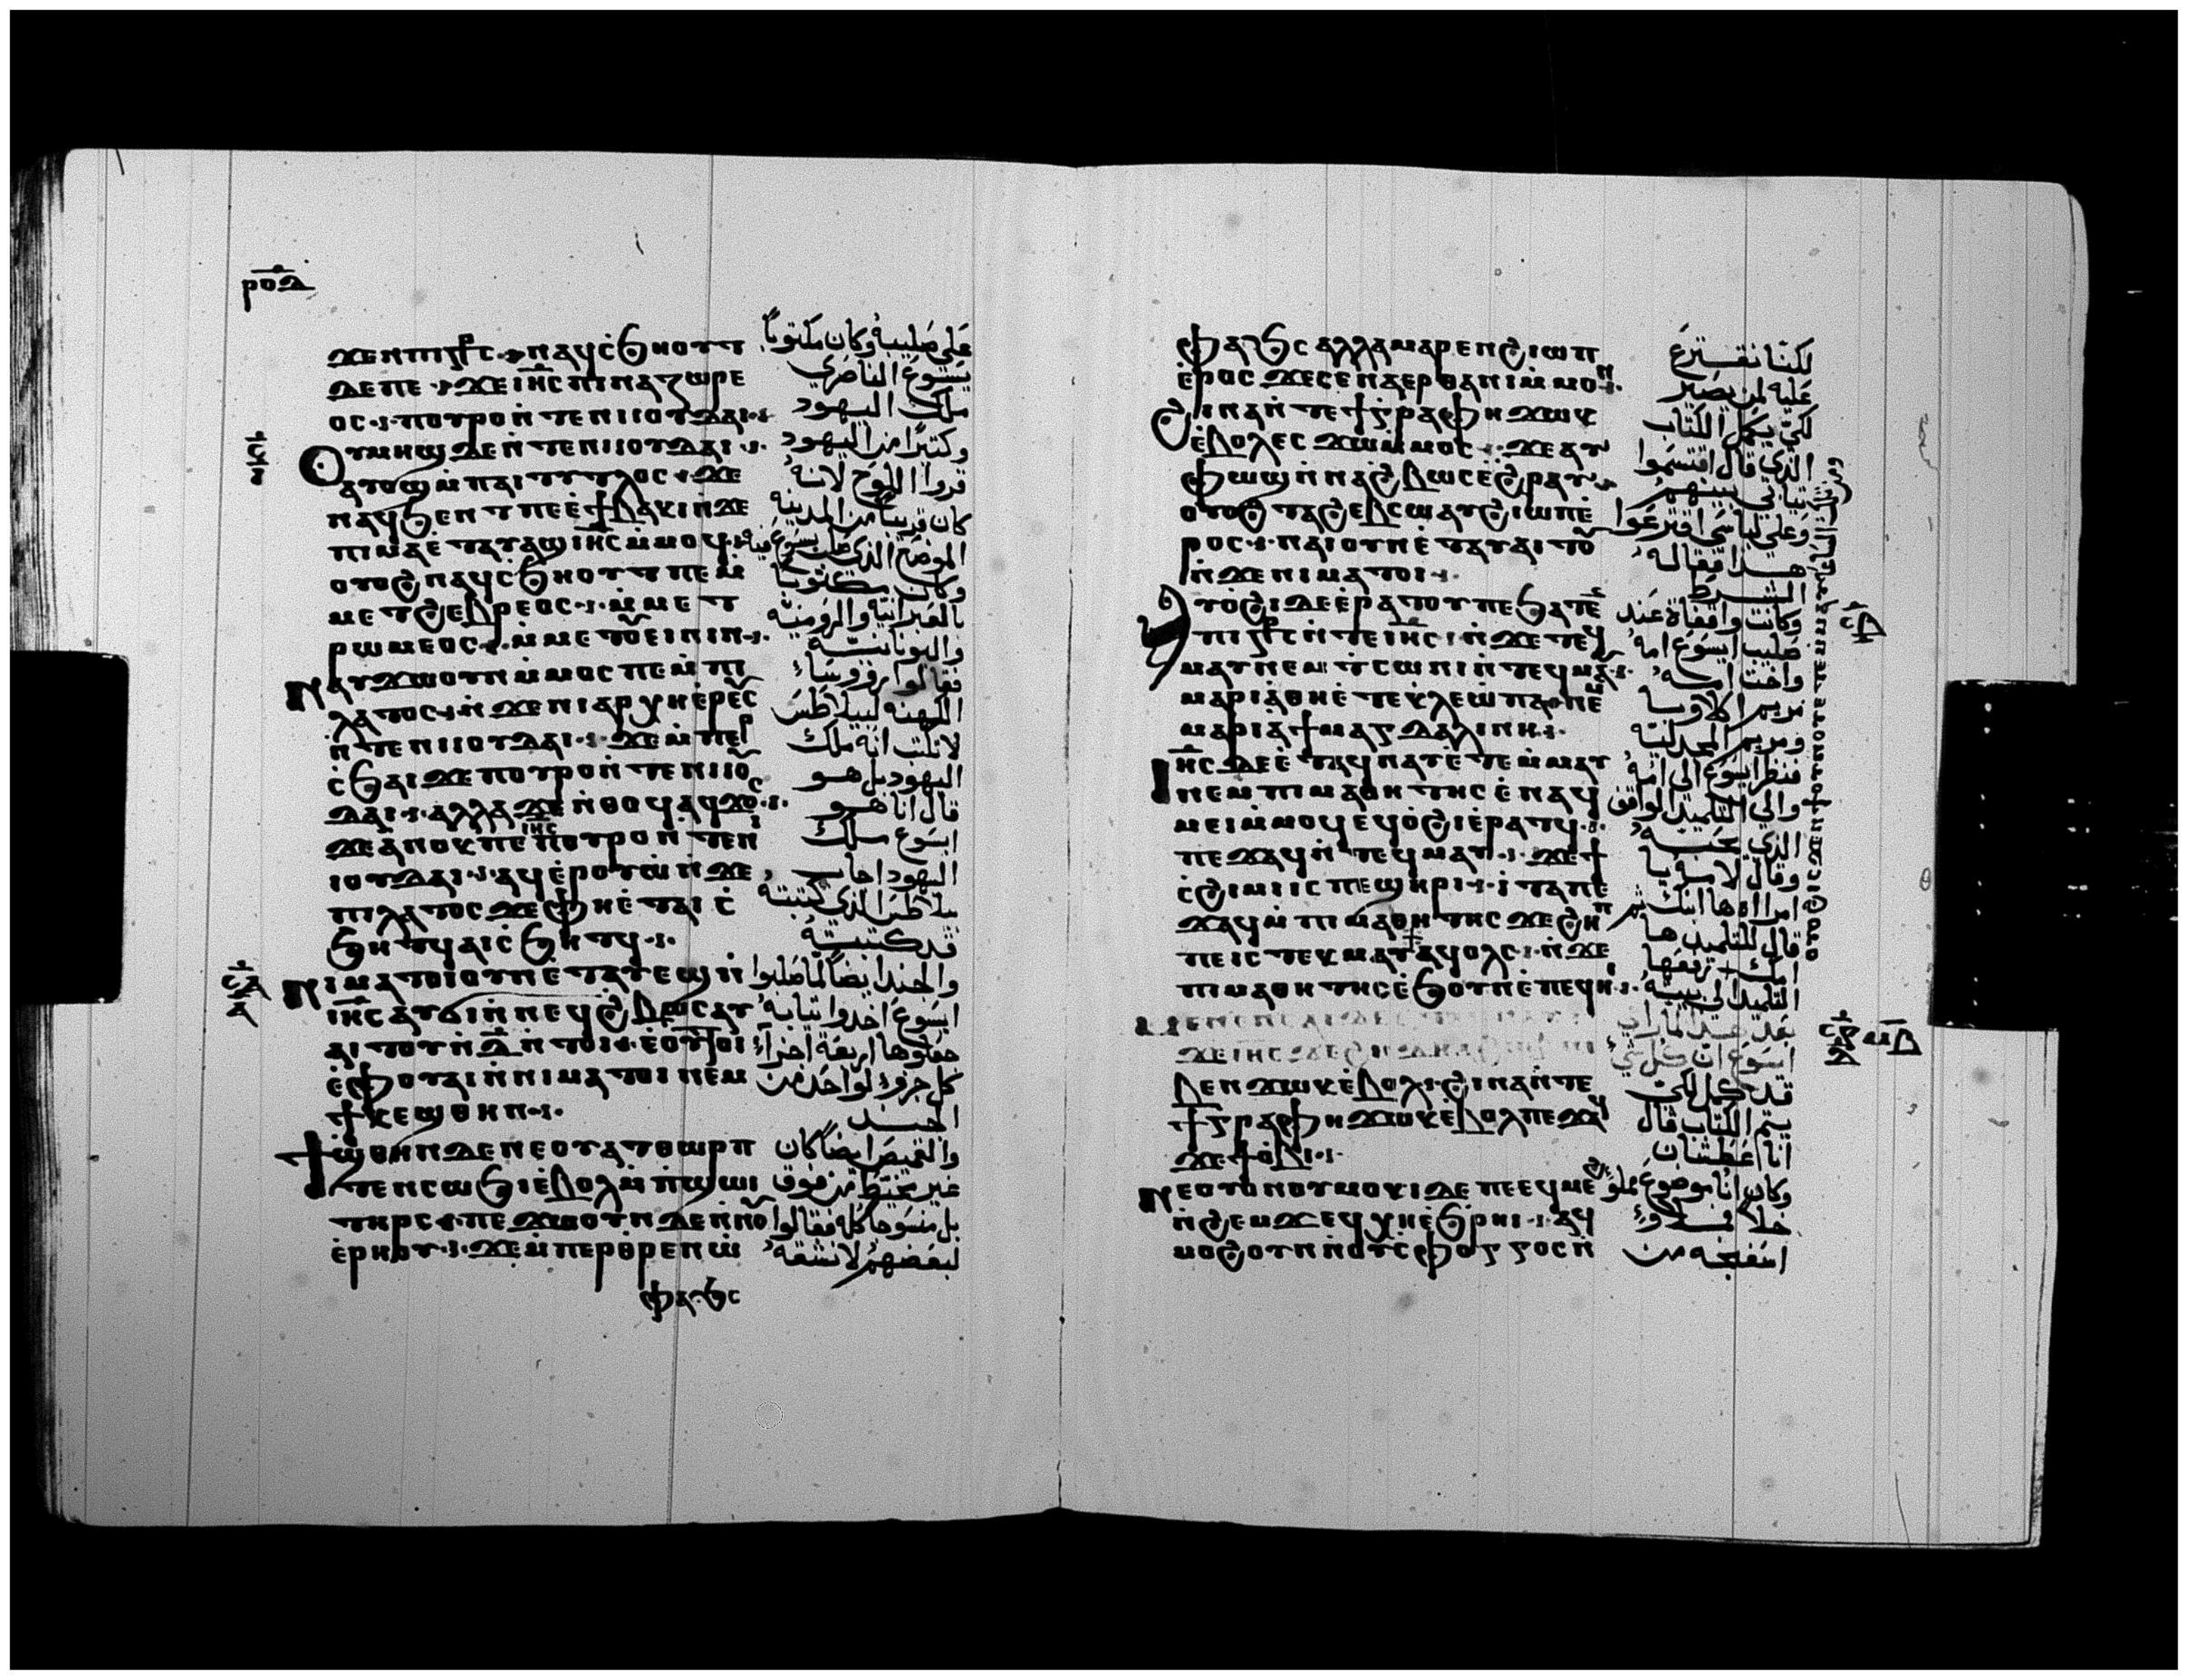 ⲣⲟⲇ
ϫⲉⲛⲡⲓⲥⳁⲥ ⲛⲁϥⲥ̀ϧⲏⲟⲩⲧ
ⲇⲉⲡⲉ ϫⲉ ⲓⲏ̅ⲥ̅ ⲡⲓⲛⲁⲍⲱⲣⲉ
ⲟⲥ ⲡⲟⲩⲣⲟ ⲛ̀ⲧⲉⲛⲓⲓⲟⲩⲇⲁⲓ
ⲟⲩⲙⲏϣ ⲇⲉ ⲛ̀ⲧⲉⲛⲓⲓⲟⲩⲇⲁⲓ
ⲁⲩⲱϣ ⲙ̀ⲡⲁⲓⲧⲩⲧⲗⲟⲥ ϫⲉ
ⲛⲁϥϧⲉⲛⲧ ⲡⲉ ⲉ̀ϯⲃⲁⲕⲓ ⲛ̀ϫⲉ
ⲡⲓⲙⲁ ⲉ̀ⲧⲁⲩⲁϣ ⲓⲏ̅ⲥ̅ ⲙ̀ⲙⲟϥ
ⲟⲩⲟϩ ⲛⲁϥⲥ̀ϧⲏⲟⲩⲧ ⲡⲉ ⲙ̀
ⲙⲉⲧϩⲉⲃⲣⲉⲟⲥ ⲙ̀ⲙⲉⲧ
ⲣⲱⲙⲉⲟⲥ ⲙ̀ⲙⲉⲧⲟⲩⲉⲓⲛⲓⲛ
ⲛⲁⲩϫⲱ ⲟⲩⲛ ⲙ̀ⲙⲟⲥ ⲡⲉ ⲙ̀ⲡⲓ
ⲗⲁⲧⲟⲥ ⲛ̀ϫⲉ ⲛⲓⲁⲣⲭⲏⲉⲣⲉⲩⲥ
ⲛ̀ⲧⲉⲛⲓⲓⲟⲩⲇⲁⲓ ϫⲉ ⲙ̀ⲡⲉⲣ
ⲥ̀ϧⲁⲓ ϫⲉ ⲡⲟⲩⲣⲟ ⲛ̀ⲧⲉⲛⲓⲓⲟⲩ
ⲇⲁⲓ ⲁⲗⲗⲁ ϫⲉ ⲛ̀ⲑⲟϥ ⲁϥϫⲟⲥ
ϫⲉ ⲁⲛⲟⲕ ⲡⲉ ⲓⲏⲥ ⲡⲟⲩⲣⲟ ⲛ̀ⲧⲉⲛⲓ
ⲓⲟⲩⲇⲁⲓ ⲁϥⲉⲣⲟⲩⲱ̀ ⲛ̀ϫⲉ
ⲡⲓⲗⲁⲧⲟⲥ ϫⲉ ⲫⲏ ⲉ̀ⲧⲁⲓⲥ̀
ϧⲏⲧϥ ⲁⲓⲥ̀ϧⲏⲧϥ
ⲛⲓⲙⲁⲧⲟⲓ ⲟⲩⲛ ⲉ̀ⲧⲁⲩⲉϣ ⲛ̀
ⲓⲏ̅ⲥ̅ ⲁⲩϭⲓ ⲛ̀ⲛⲉϥϩⲃⲱⲥ ⲁⲩ
ⲁⲓⲧⲟⲩ ⲛ̀ⲇ̅ ⲛ̀ⲧⲟⲓ ⲉⲟⲩⲧⲟⲓ
ⲉ̀ⲫⲟⲩⲁⲓ ⲛ̀ⲛⲓⲙⲁⲧⲟⲓ ⲛⲉⲙ
ϯⲕⲉϣⲑⲏⲛ
ϯϣ̀ⲑⲏⲛ ⲇⲉ ⲛⲉ ⲟⲩⲁⲧⲑⲱⲣⲡ
ⲧⲉ ⲛ̀ⲥⲱϧⲓ ⲉ̀ⲃⲟⲗ ⲙ̀ⲡ̀ϣⲱⲓ
ⲧⲏⲣⲥ ⲡⲉϫⲱⲟⲩ ⲛ ⲇⲉ ⲛ̀ⲛⲟⲩ
ⲉ̀ⲣⲏⲟⲩ ϫⲉ ⲙ̀ⲡⲉⲣⲑⲣⲉⲛⲱ̀
ⲫⲁϧⲥ
على صليبه وكان مكتوباً
يسوع الناصري
ملك اليهود
وكثيراً من اليهود
قروا اللوح لانه
كان قريباً من المدينه
الموضع الذي صلب يسوع فيه
وكان مكتوباً
بالعبرانيه والروميه
واليونانيه
فقالوا روساء
الكهنه لبيلاطس
لا تكتب انه ملك
اليهود بل هو
قال انا هو
ايسوع ملك
اليهود اجاب
بيلاطس الذي كتبته
قد كتبته
والجند ايضاً لما صلبوا
ايسوع اخذوا ثيابه
جعلوها اربعة اجزاء
كل جزو لواحد من
الجند
والقميص ايضاً كان
غير مخيط من فوق
بل منسوجاً كله فقالوا
لبعضهم لا نشقه
ⲫⲁϧⲥ ⲁⲗⲗⲁ ⲙⲁⲣⲉⲛϩⲓⲱⲡ
ⲉ̀ⲣⲟⲥ ϫⲉ ⲥⲉⲛⲁⲉⲣ ⲑⲁⲛⲓⲙ ⲙ̀ⲙⲟⲛ
ϩⲓⲛⲁ ⲛ̀ⲧⲉϯⲅⲣⲁⲫⲏ ϫⲱⲕ
ⲉ̀ⲃⲟⲗ ⲉⲥϫⲱ ⲙ̀ⲙⲟⲥ ϫⲉ ⲁⲩ
ⲫⲱϣ ⲛ̀ⲛⲁϩⲃⲱⲥ ⲉ̀ϩⲣⲁⲩ
ⲟⲩⲟϩ ⲧⲁϩⲉⲃⲥⲱ ⲁⲩϩⲓⲱⲡ ⲉ̀
ⲣⲟⲥ ⲛⲁⲓ ⲟⲩⲛ ⲉ̀ⲧⲁⲩⲁⲓⲧⲟⲩ
ⲛ̀ϫⲉ ⲛⲓⲙⲁⲧⲟⲓ
ⲛⲁⲩⲟϩⲓ ⲇⲉ ⲉ̀ⲣⲁⲧⲟⲩ ⲡⲉ ϧⲁⲧⲉⲛ
ⲡⲓⲥⳁⲥ ⲛ̀ⲧⲉ ⲓⲏ̅ⲥ̅ ⲛ̀ϫⲉ ⲧⲉϥ
ⲙⲁⲩ ⲛⲉⲙ ⲧ̀ⲥⲱⲛⲓ ⲛ̀ⲧⲉϥⲙⲁⲩ
ⲙⲁⲣⲓⲁ ⲑⲏ ⲉ̀ⲧⲉ ⲕⲗⲉⲱⲡⲁ ⲛⲉⲙ
ⲙⲁⲣⲓⲁ ϯⲙⲁⲅⲇⲁⲗⲓⲛⲏ
ⲓⲏ̅ⲥ̅ ⲇⲉ ⲉ̀ⲧⲁϥⲛⲁⲩ ⲉ̀ⲧⲉϥⲙⲁⲩ
ⲛⲉⲙ ⲡⲓⲙⲁⲑⲏⲧⲏⲥ ⲉ̀ⲛⲁϥ
ⲙⲉⲓ ⲙ̀ⲙⲟϥ ⲉϥⲟ̀ϩⲓ ⲉ̀ⲣⲁⲧϥ
ⲡⲉϫⲁϥ ⲛ̀ⲧⲉϥⲙⲁⲩ ϫⲉ ϯ
ⲥ̀ϩⲓⲙⲓ ⲓⲥ ⲡⲉϣⲏⲣⲓ ⲓⲧⲁ ⲡⲉ
ϫⲁϥ ⲙ̀ⲡⲓⲙⲁⲑⲏⲧⲏⲥ ϫⲉ ϩⲏⲡ
ⲡⲉ ⲓⲥ ⲧⲉⲕⲙⲁⲩ ⲁϥⲟⲗⲥ ⲛ̀ϫⲉ
ⲡⲓⲙⲁⲑⲏⲧⲏⲥ ⲉ̀ϧⲟⲩⲛ ⲉ̀ⲡⲉϥⲏⲓ
ϫⲉ ⲓⲏⲥ ϫⲉ
ⲃⲉⲛ ϫⲱⲕ ⲉ̀ⲃⲟⲗ ϩⲓⲛⲁ ⲛ̀ⲧⲉ
ϯⲅⲣⲁⲫⲏ ϫⲱⲕ ⲉ̀ⲃⲟⲗ ⲡⲉϫⲁϥ
ϫⲉ ϯⲟ̀ⲃⲓ
ⲛⲉ ⲟⲩⲟⲛ ⲟⲩⲙⲟⲕⲓ ⲇⲉ ⲡⲉ ⲉϥⲙⲉϩ
ⲛ̀ϩⲉⲙϫ ⲉϥⲭⲏ ⲉ̀ϧⲣⲏⲓ ⲁϥ
ⲙⲟϩ ⲟⲩⲛ ⲛ̀ⲟⲩⲥ̀ⲫⲟⲅⲅⲟⲥ ⲛ̀
لكنا نقترع
عليه لمن يصير
لكي يكمل الكتاب
الذي قال اقتسموا
ثيابي بينهم
وعلى لباسي اقترعوا
هذا فعله
الشرط
وكانت واقفاة عند
صليب ايسوع امه
واخت امه
مريم
ومريم المجدليه
فنظر ايسوع الى امه
والى التلميذ الواقف
الذي يحبه
وقال لامه يا
امراه ها ابنك ثم
قال للتلميذ ها
امك
التلميذ الى بيته
ايسوع ان كل شي
قد كمل لكي
يتم الكتاب قال
انا عطشان
وكان انا موضوع مملوء
خلا
اسفنجه من